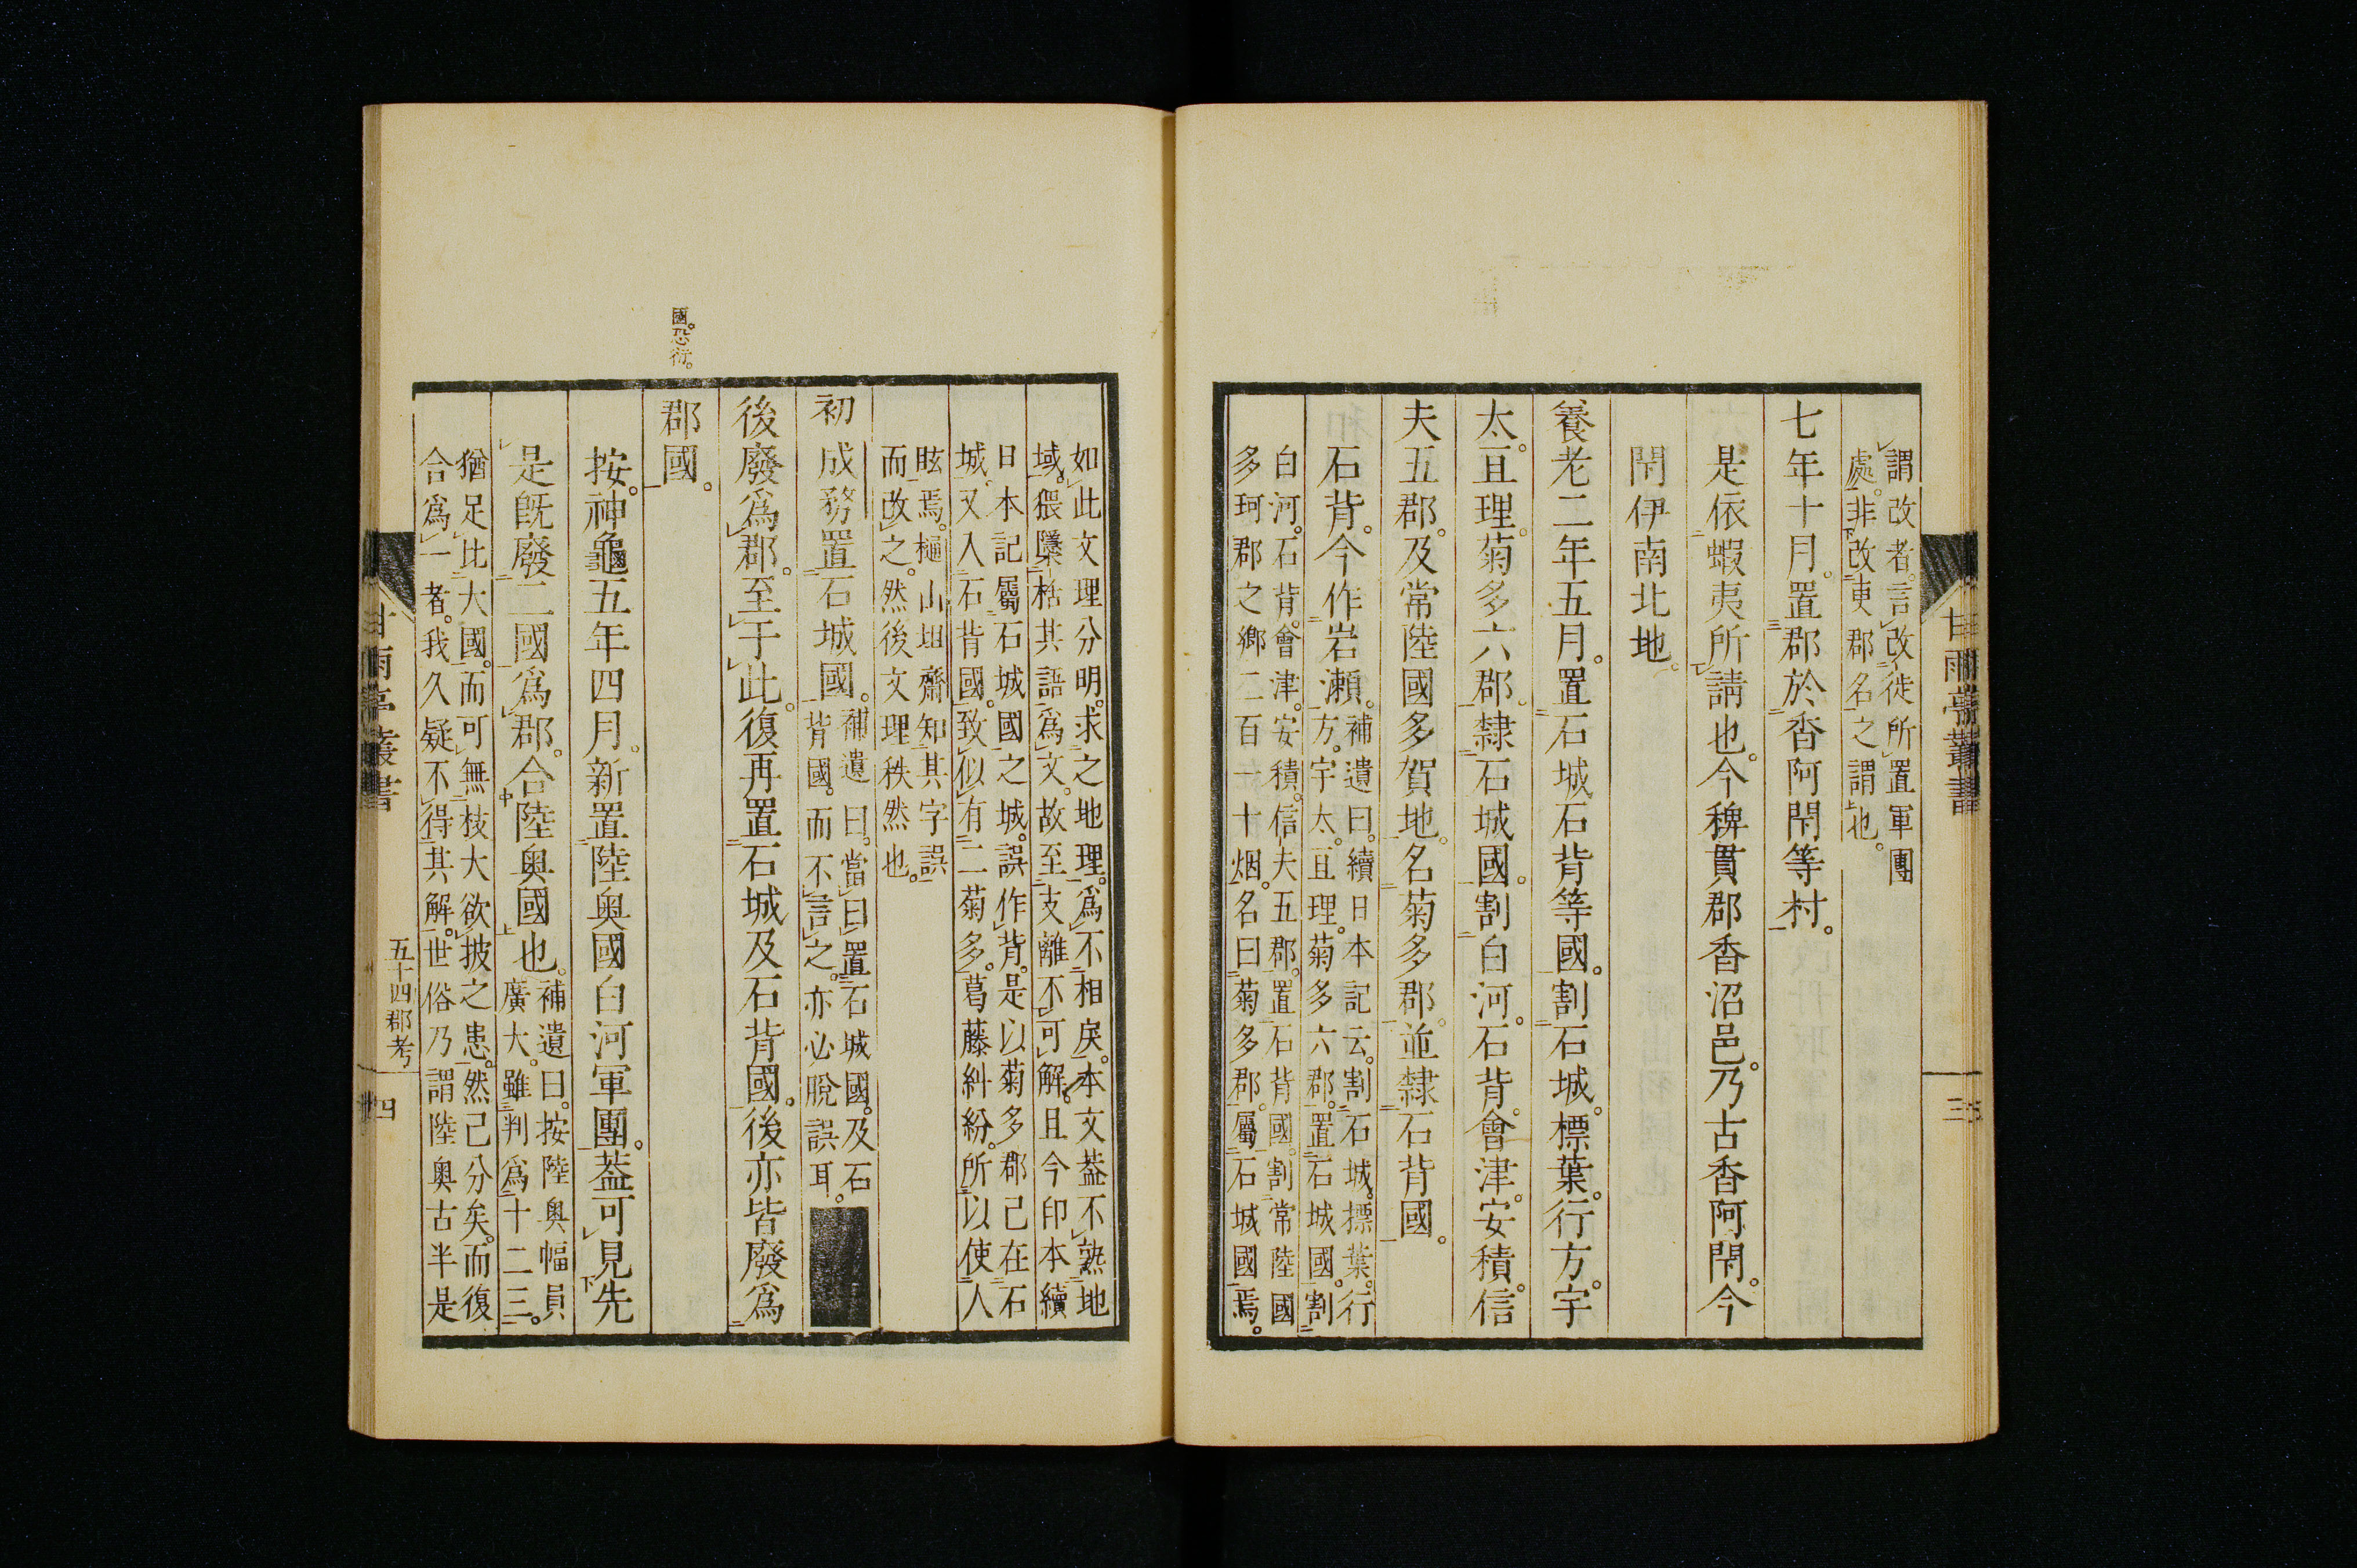 謂改者。言改徙所置軍團
處。非改吏郡名之謂也。
七年十月。置郡於香阿閇等村。
是依蝦夷所請也。今稗貫郡香沼邑。乃古香阿閇。今
閇伊南北地。
養老二年五月。置石城石背等國。割石城。標葉。行方。宇
太。亘理。菊多六郡。隸石城國。割白河。石背。會津。安積。信
夫五郡。及常陸國多賀地。名菊多郡。並隸石背國。
石背。今作岩瀨。補遺曰。續日本記云。割石城。標葉。行
方。宇太。亘理。菊多六郡。置石城國。割
白河。石背。會津。安積。信夫五郡。置石背國。割常陸國
多珂郡之鄉二百一十烟。名曰菊多郡。屬石城國焉。
甘雨亭叢書
三
如此文理分明。求之地理。爲不相戾。本文葢不熟地
域。猥檃栝其語爲文。故至支離不可解。且今印本續
日本記屬石城國之城。誤作背。是以菊多郡已在石
城。又入石背國。致似有二菊多。葛藤糾紛。所以使人
眩焉。樋山坦齋知其字誤
而改之。然後文理秩然也。
初成務置石城國。補遺曰。當曰置石城國。及石
背國。而不言之。亦必脫誤耳。
後廢爲郡。至于此。復再置石城及石背國。後亦皆廢爲
郡國。
國。恐衍。
按。神龜五年四月。新置陸奥國白河軍團。葢可見先
是既廢二國爲郡。合陸奥國也。補遺曰。按陸奥幅員
廣大。雖判爲十二三。
猶足比大國。而可無枝大欲披之患。然已分矣。而復
合爲一者。我久疑不得其解。世俗乃謂陸奥古半是
甘雨亭叢書
五十四郡考
四